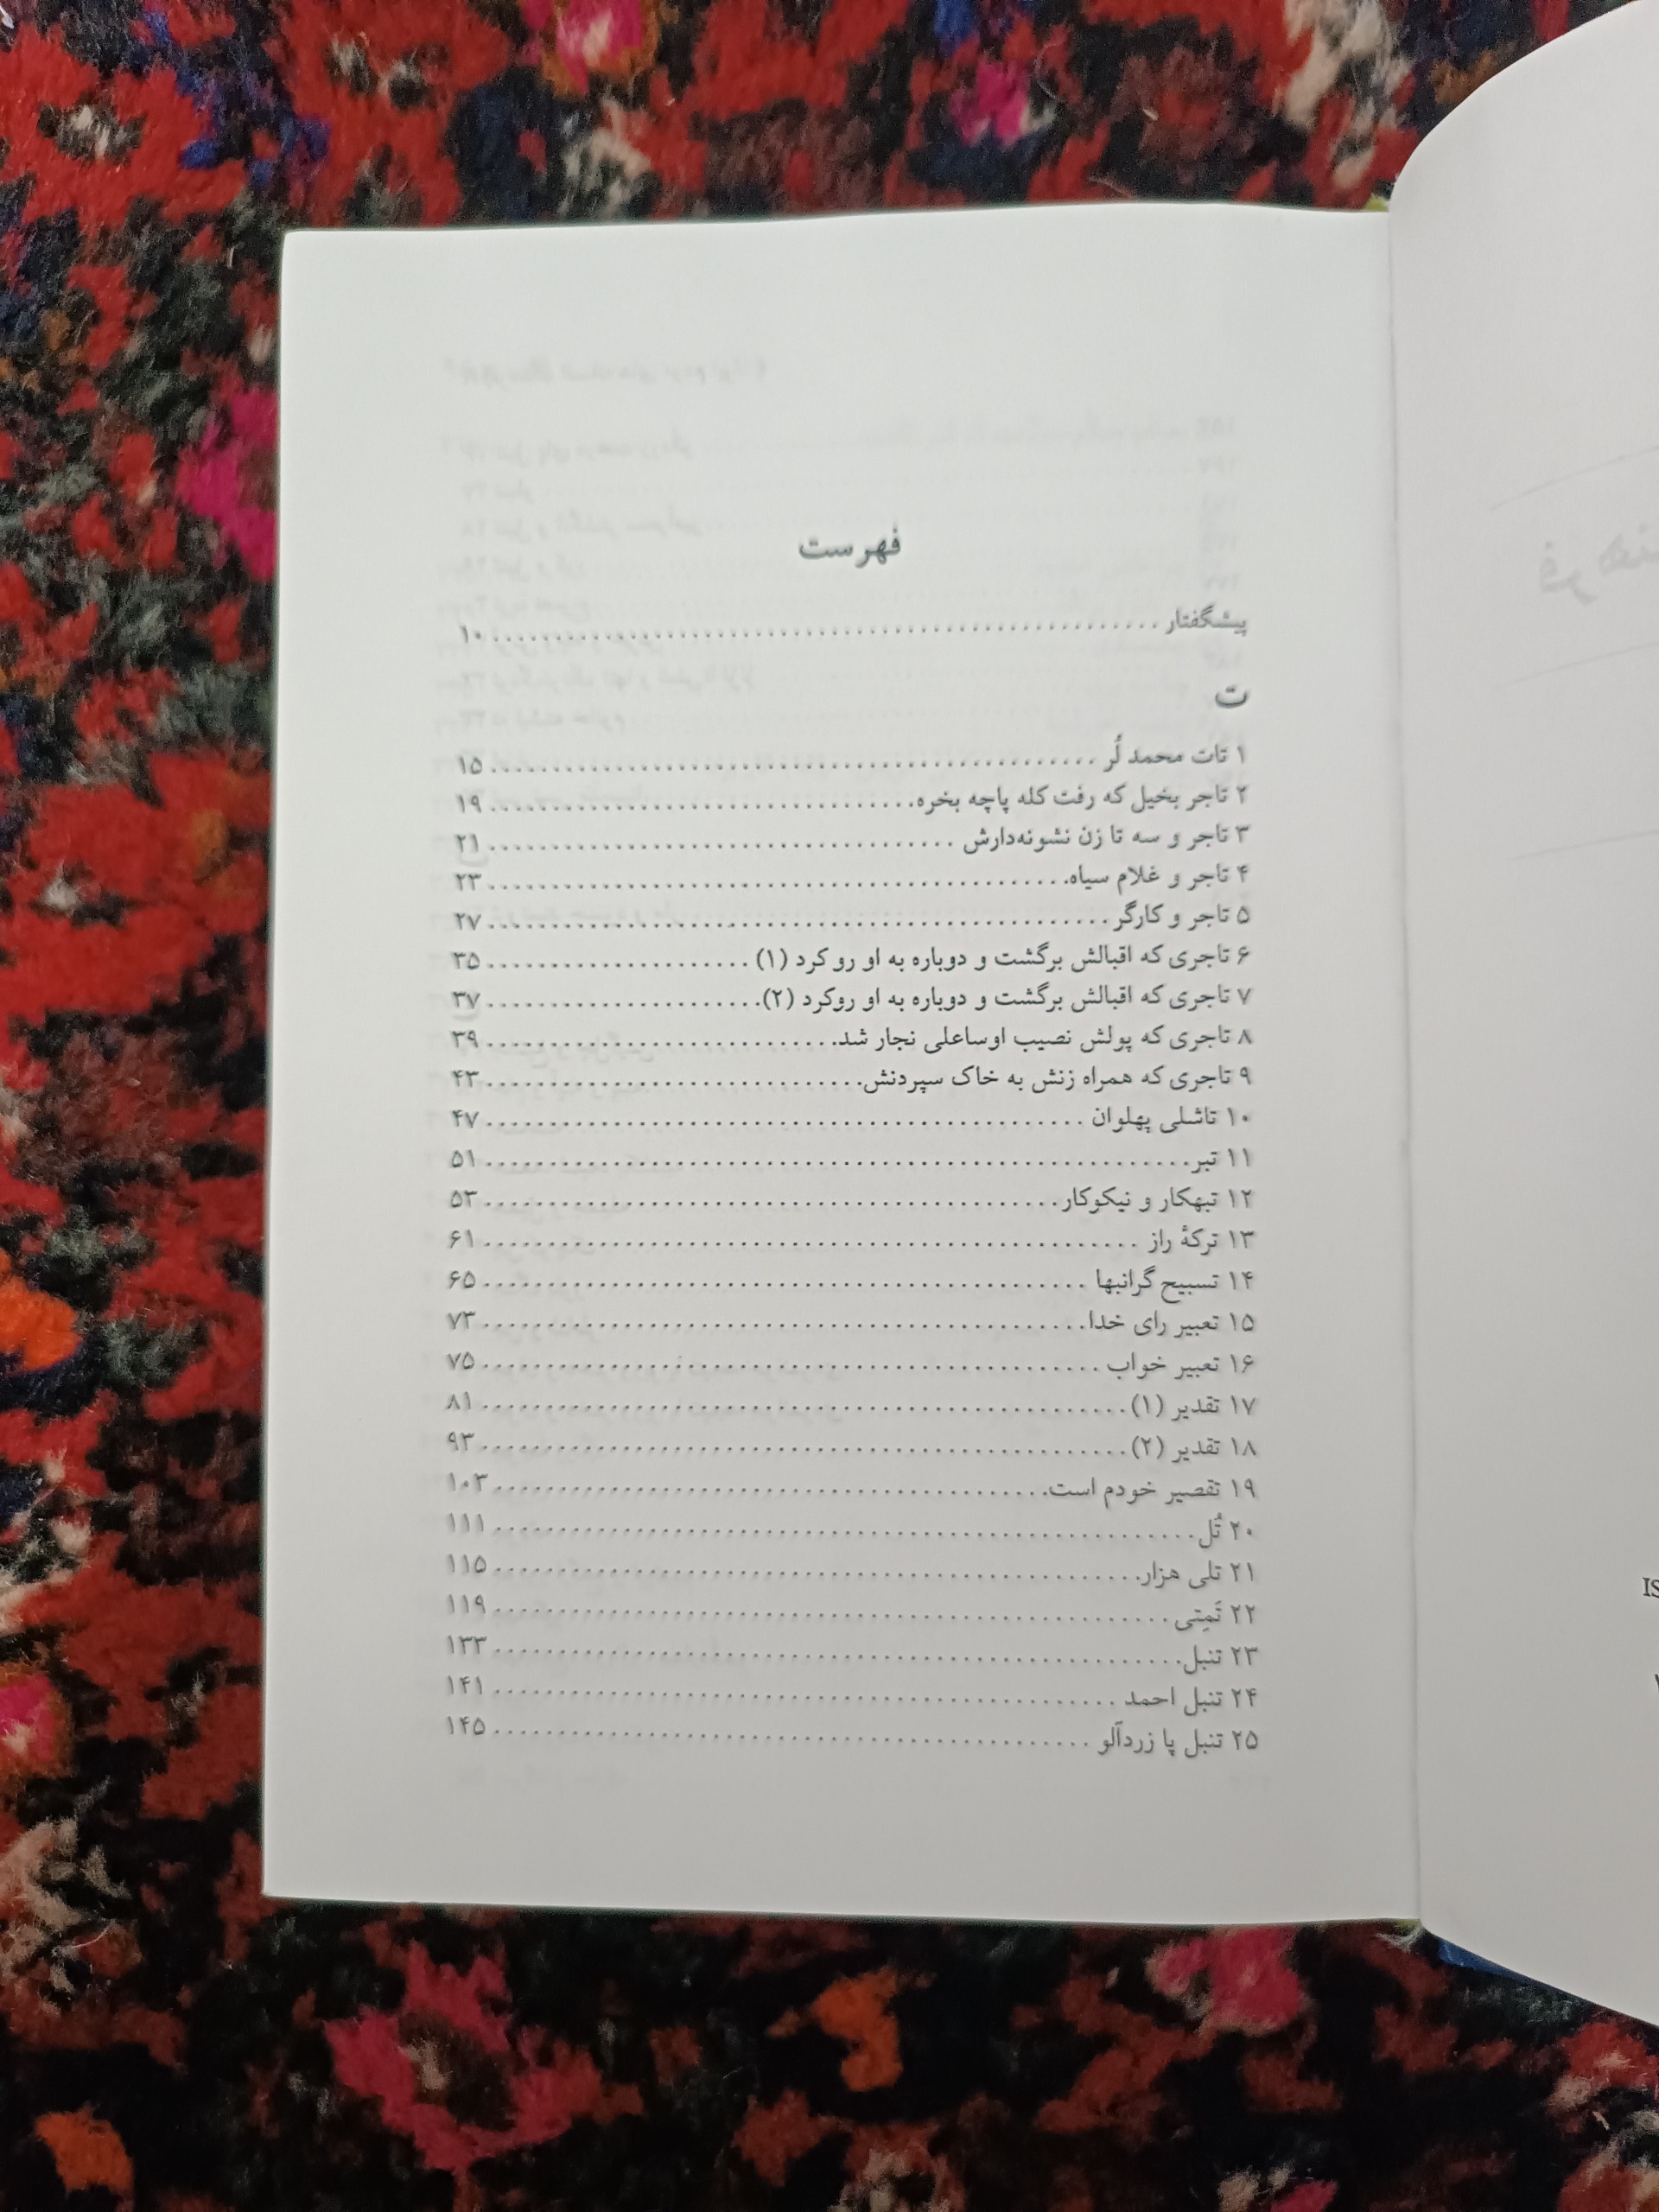 فهرست
پیشگفتار ........ ۱۰
ت
۱ تات محمد لُر ........ ۱۵
۲ تاجر بخیل که رفت کله پاچه بخره ........ ۱۹
۳ تاجر و سه تا زن نشونه‌دارش ........ ۲۱
۴ تاجر و غلام سیاه ........ ۲۳
۵ تاجر و کارگر ........ ۲۷
۶ تاجری که اقبالش برگشت و دوباره به او رو کرد (۱) ........ ۳۵
۷ تاجری که اقبالش برگشت و دوباره به او روکرد (۲) ........ ۳۷
۸ تاجری که پولش نصیب اوساعلی نجار شد ........ ۳۹
۹ تاجری که همراه زنش به خاک سپردنش ........ ۴۳
۱۰ تاشلی پهلوان ........ ۴۷
۱۱ تبر ........ ۵۱
۱۲ تبهکار و نیکوکار ........ ۵۳
۱۳ ترکهٔ راز ........ ۶۱
۱۴ تسبیح گرانبها ........ ۶۵
۱۵ تعبیر رای خدا ........ ۷۳
۱۶ تعبیر خواب ........ ۷۵
۱۷ تقدیر (۱) ........ ۸۱
۱۸ تقدیر (۲) ........ ۹۳
۱۹ تقصیر خودم است ........ ۱۰۳
۲۰ تُل ........ ۱۱۱
۲۱ تلی هزار ........ ۱۱۵
۲۲ تَمِتی ........ ۱۱۹
۲۳ تنبل ........ ۱۳۳
۲۴ تنبل احمد ........ ۱۴۱
۲۵ تنبل پا زردآلو ........ ۱۴۵